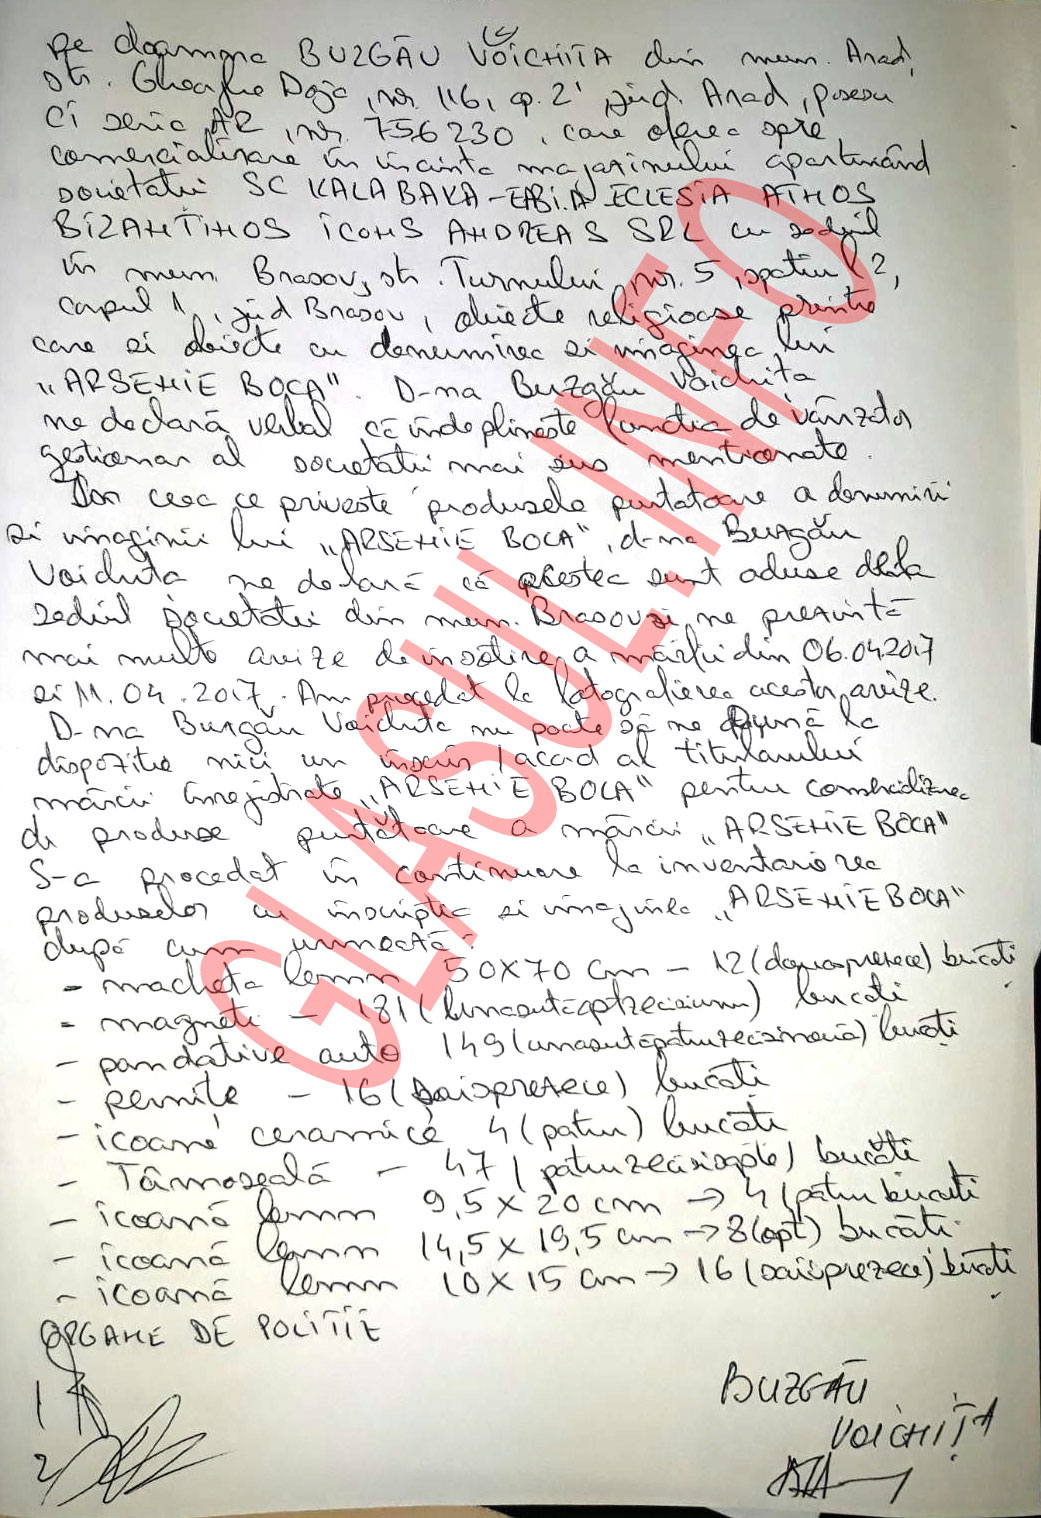 pe doamna BUZGĂU VOICHIȚA din mun. Arad,
str. Gheorghe Doja, nr. 116, ap. 2, jud. Arad, posesor
CI seria AR, nr. 756230, care oferea spre
comercializare în incinta magazinului aparținând
societatii SC KALABAKA-FABIA ECLESIA ATHOS
BIZANTINOS ICONS ANDREAS SRL cu sediul
în mun. Brasov, str. Turnului, nr. 5, spatiul 2,
corpul 1, jud Brasov, obiecte religioase printre
care si obiecte cu denumirea si imaginea lui
„ARSENIE BOCA". D-na Buzgău Voichita
ne declară verbal că îndeplineste functia de vânzător
gestionar al societatii mai sus mentionate.
Din ceea ce priveste produsele purtatoare a denumirii
si imaginii lui „ARSENIE BOCA", d-na Buzgău
Voichita ne declară că acestea sunt aduse de la
sediul societatii din mun. Brasov si ne prezintă
mai multe avize de însotire a mărfii din 06.04.2017
si 11.04.2017. Am procedat la fotografierea acestor avize.
D-na Buzgău Voichita nu poate să ne pună la
dispozitie nici un înscris/acord al titularului
mărcii înregistrate „ARSENIE BOCA" pentru comercializarea
de produse purtătoare a mărcii „ARSENIE BOCA"
S-a procedat în continuare la inventarierea
produselor cu inscriptia si imaginea „ARSENIE BOCA"
după cum urmează:
- macheta lemn 50X70 cm - 12 (douasprezece) bucăti
- magneti - 181 (unasutăoptzecisiunu) bucăti
- pandative auto 149 (unasutăpatruzecisinouă) bucăți
- pernițe - 16 (saisprezece) bucăți
- icoană ceramică 4 (patru) bucăti
- Tămâioseală - 47 (patruzecisisapte) bucăti
- icoană lemn 9,5 x 20 cm → 4 (pătru bucăti
- icoană lemn 14,5 x 19,5 cm → 8 (opt) bucăti
- icoană lemn 10 x 15 cm → 16 (saisprezece) bucăti
ORGANE DE POLITIE
1
2
BUZGĂU
VOICHIȚA
GLASUL.INFO